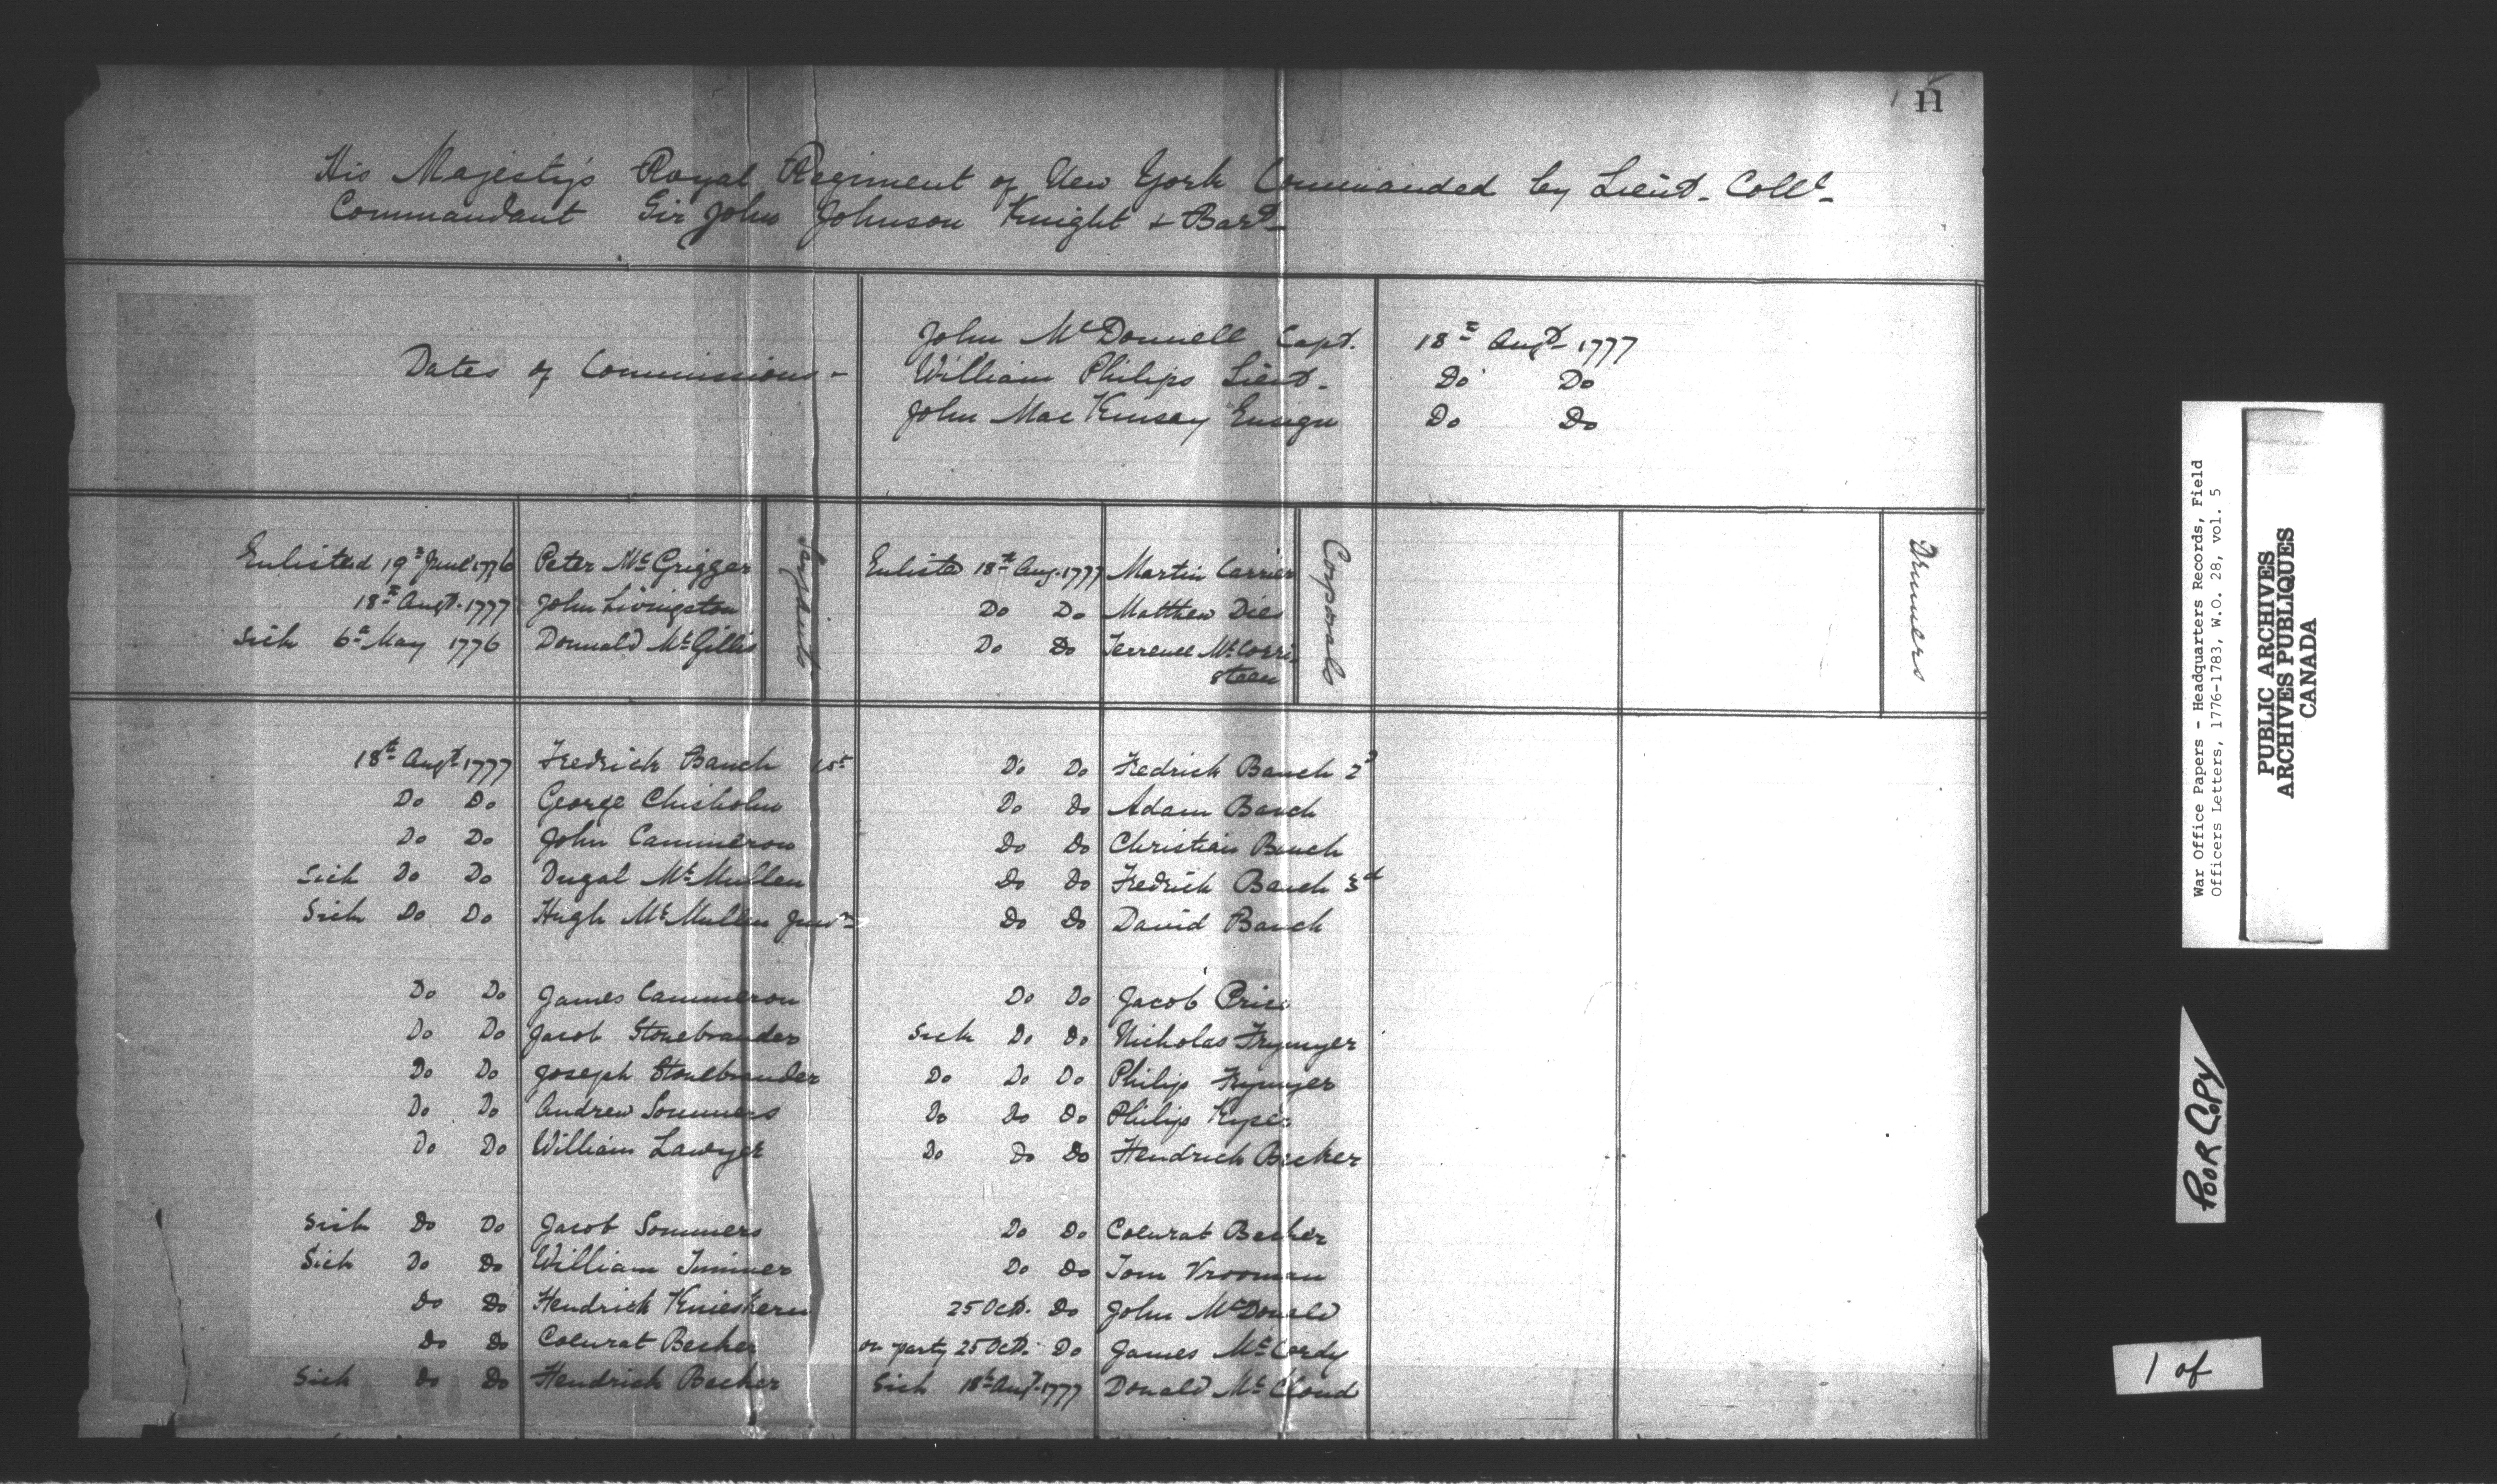 11
His Majesty's Royal Regiment of New York Commanded by Lieut. Coll.
Commandant Sir John Johnson Knight & Bart.
Dates of Commissions -
John McDonnell Capt. 18th Augt. 1777
William Philips Lieut. Do Do
John Mac Kinsay Ensign Do Do
Enlisted 19th June 1776 Peter McGrigger
18th Augt. 1777 John Livingston
Sick 6th May 1776 Donnald McGillis
Sarjeants
Enlisted 18th Aug. 1777 Martin Carrier
Do Do Matthew Dies
Do Do Terrence McCorri-
steen
Corporals
Drummers
18th Augt. 1777 Fredrick Bauch 1st
Do Do George Chisholm
Do Do John Cammeron
Sick Do Do Dugal McMullen
Sick Do Do Hugh McMullen Junr
Do Do James Cammeron
Do Do Jacob Stonebrander
Do Do Joseph Stonebrander
Do Do Andrew Sommers
Do Do William Lawyer
Sick Do Do Jacob Sommers
Sick Do Do William
Do Do Hendrick Knieskern
Do Do Coenrat Becker
Sick Do Do Hendrick Becker
Do Do Fredrick Bauch 2d
Do Do Adam Bauch
Do Do Christian Bauch
Do Do Fredrick Bauch 3d
Do Do David Bauch
Do Do Jacob Price
Sick Do Do Nicholas Frymyer
Do Do Do Philip Frymyer
Do Do Do Philip
Do Do Do Hendrick Becker
Do Do Coenrat Becker
Do Do Tom Vrooman
25 Oct. Do John McDonald
on party 25 Oct. Do James McCordy
Sick 18th Augt. 1777 Donald McCloud
War Office Papers - Headquarters Records, Field
Officers Letters, 1776-1783, W.O. 28, vol. 5
PUBLIC ARCHIVES
ARCHIVES PUBLIQUES
CANADA
POOR COPY
1 of